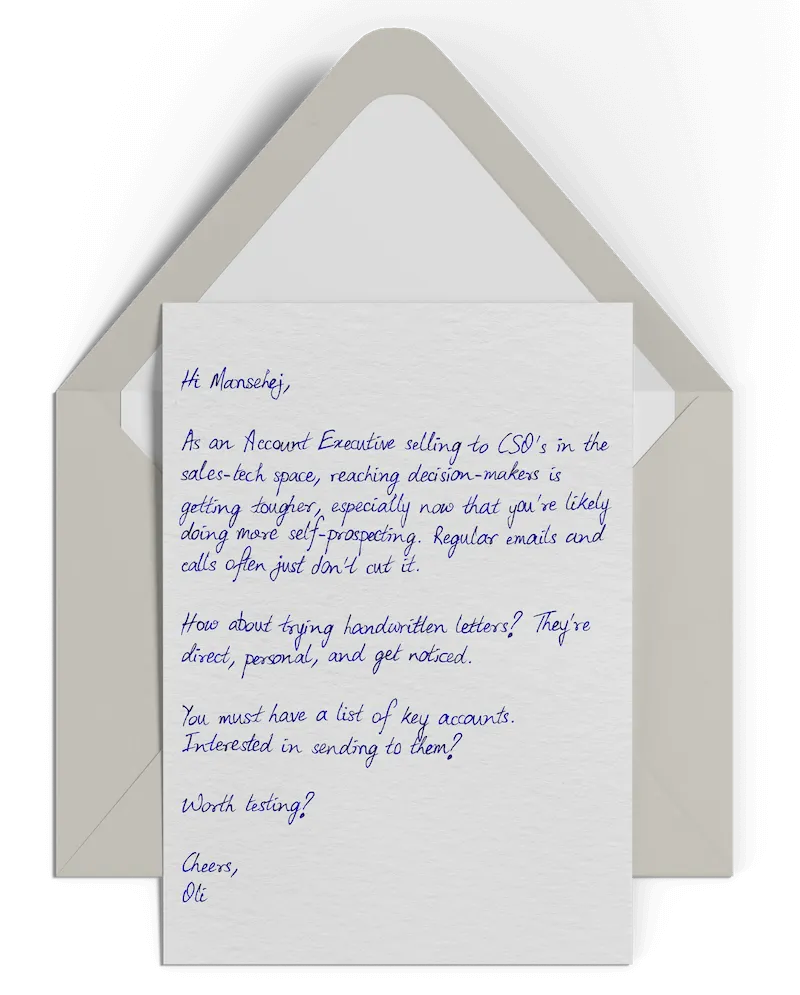 Hi Mansehej,
As an Account Executive selling to CSO's in the
sales-tech space, reaching decision-makers is
getting tougher, especially now that you're likely
doing more self-prospecting. Regular emails and
calls often just don't cut it.
How about trying handwritten letters? They're
direct, personal, and get noticed.
You must have a list of key accounts.
Interested in sending to them?
Worth testing?
Cheers,
Oli